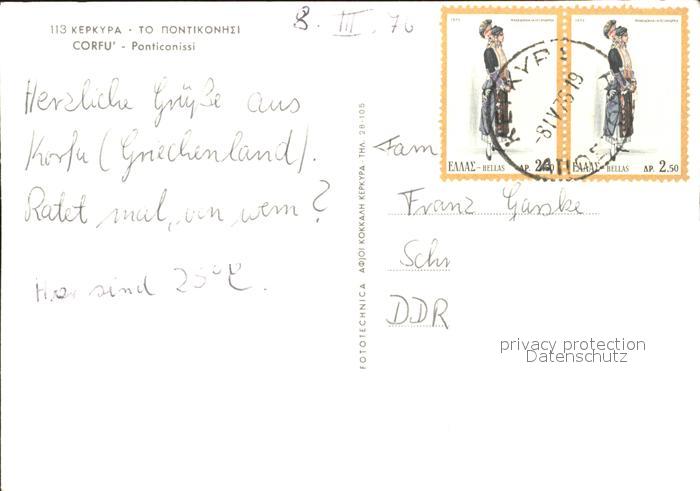 113 ΚΕΡΚΥΡΑ · ΤΟ ΠΟΝΤΙΚΟΝΗΣΙ
CORFU' - Ponticonissi
8. III. 76
Herzliche Grüße aus
Korfu (Griechenland).
Ratet mal, von wem?
Hier sind 25°C.
FOTOTECHNICA ΑΦΙΟΙ ΚΟΚΚΑΛΗ ΚΕΡΚΥΡΑ · ΤΗΛ. 28-105
1972
ΕΛΛΑΣ-HELLAS ΔΡ. 2.50
1972
ΕΛΛΑΣ-HELLAS ΔΡ. 2.50
ΚΕΡΚΥΡΑ
-8.IV.76.19
Fam
Franz Gaske
Schr
DDR
privacy protection
Datenschutz